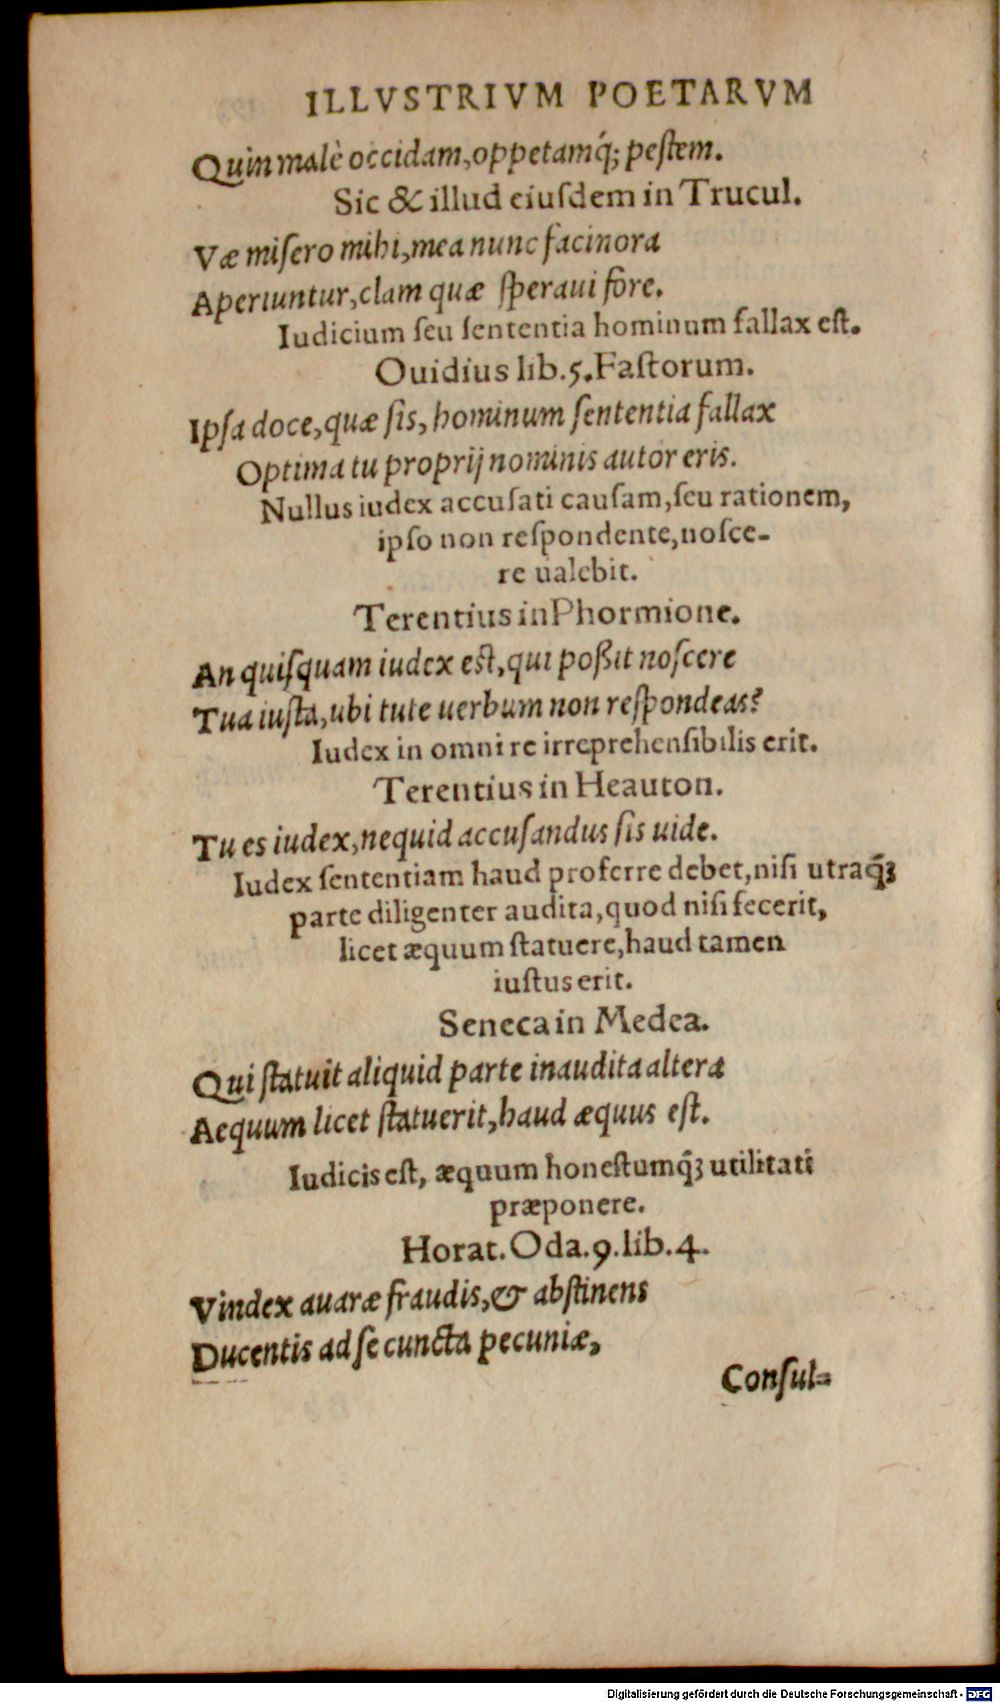 ILLVSTRIVM POETARVM
Quin malè occidam, oppetamq́; peſtem.
Sic & illud eiuſdem in Trucul.
Væ miſero mihi, mea nunc facinora
Aperiuntur, clam quæ ſperaui fore.
Iudicium ſeu ſententia hominum fallax eſt.
Ouidius lib. 5. Faſtorum.
Ipſa doce, quæ ſis, hominum ſententia fallax
Optima tu proprij nominis autor eris.
Nullus iudex accuſati cauſam, ſeu rationem,
ipſo non reſpondente, noſce-
re ualebit.
Terentius in Phormione.
An quiſquam iudex eſt, qui poßit noſcere
Tua iuſta, ubi tute uerbum non reſpondeas?
Iudex in omni re irreprehenſibilis erit.
Terentius in Heauton.
Tu es iudex, nequid accuſandus ſis uide.
Iudex ſententiam haud proferre debet, niſi utraq́ꝫ
parte diligenter audita, quod niſi fecerit,
licet æquum ſtatuere, haud tamen
iuſtus erit.
Seneca in Medea.
Qui ſtatuit aliquid parte inaudita altera
Aequum licet ſtatuerit, haud æquus eſt.
Iudicis eſt, æquum honeſtumq́ꝫ utilitati
præponere.
Horat. Oda. 9. lib. 4.
Vindex auaræ fraudis, & abſtinens
Ducentis ad ſe cuncta pecuniæ,
Conſul-
Digitalisierung gefördert durch die Deutsche Forschungsgemeinschaft - DFG